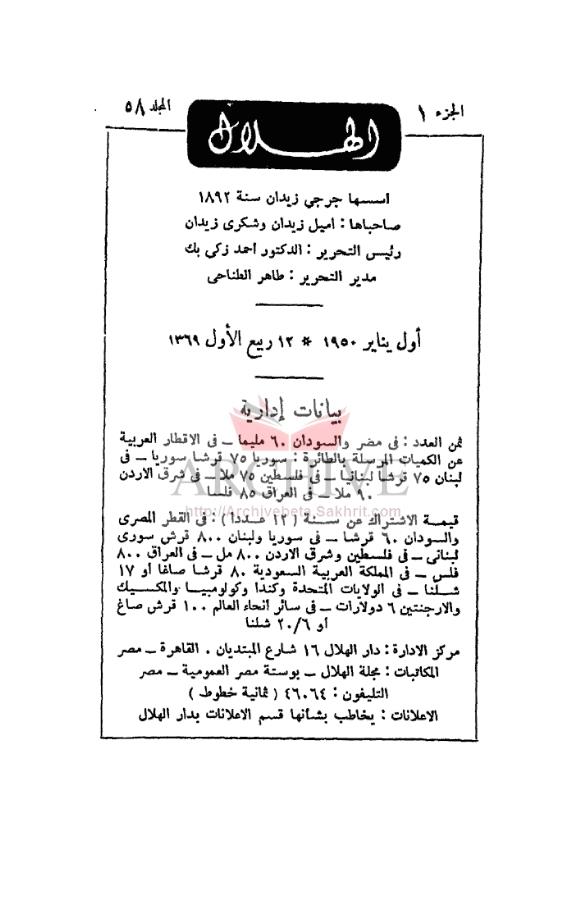 الجزء ١
المجلد ٥٨
الهلال
اسسها جرجي زيدان سنة ١٨٩٢
صاحباها : اميل زيدان وشكرى زيدان
رئيس التحرير : الدكتور احمد زكى بك
مدير التحرير : طاهر الطناحى
أول يناير ١٩٥٠ * ١٢ ربيع الأول ١٣٦٩
بيانات إدارية
ثمن العدد : فى مصر والسودان ٦٠ مليما ـ فى الاقطار العربية
عن الكميات المرسلة بالطائرة : سوريا ٧٥ قرشا سوريا ـ فى
لبنان ٧٥ قرشا لبنانيا ـ فى فلسطين ٧٥ ملا ـ فى شرق الاردن
٩٠ ملا ـ فى العراق ٨٥ فلسا
ARCHIVE
http://Archivebeta.Sakhrit.com
قيمة الاشتراك عن سنة (١٢ عددا) : فى القطر المصرى
والسودان ٦٠ قرشا ـ فى سوريا ولبنان ٨٠٠ قرش سورى
لبنانى ـ فى فلسطين وشرق الاردن ٨٠٠ مل ـ فى العراق ٨٠٠
فلس ـ فى المملكة العربية السعودية ٨٠ قرشا صاغا أو ١٧
شلنا ـ فى الولايات المتحدة وكندا وكولومبيا والمكسيك
والارجنتين ٦ دولارات ـ فى سائر أنحاء العالم ١٠٠ قرش صاغ
أو ٢٠/٦ شلنا
مركز الادارة : دار الهلال ١٦ شارع المبتديان . القاهرة ـ مصر
المكاتبات : مجلة الهلال ـ بوستة مصر العمومية ـ مصر
التليفون : ٤٦٠٦٤ ( ثمانية خطوط )
الاعلانات : يخاطب بشأنها قسم الاعلانات بدار الهلال